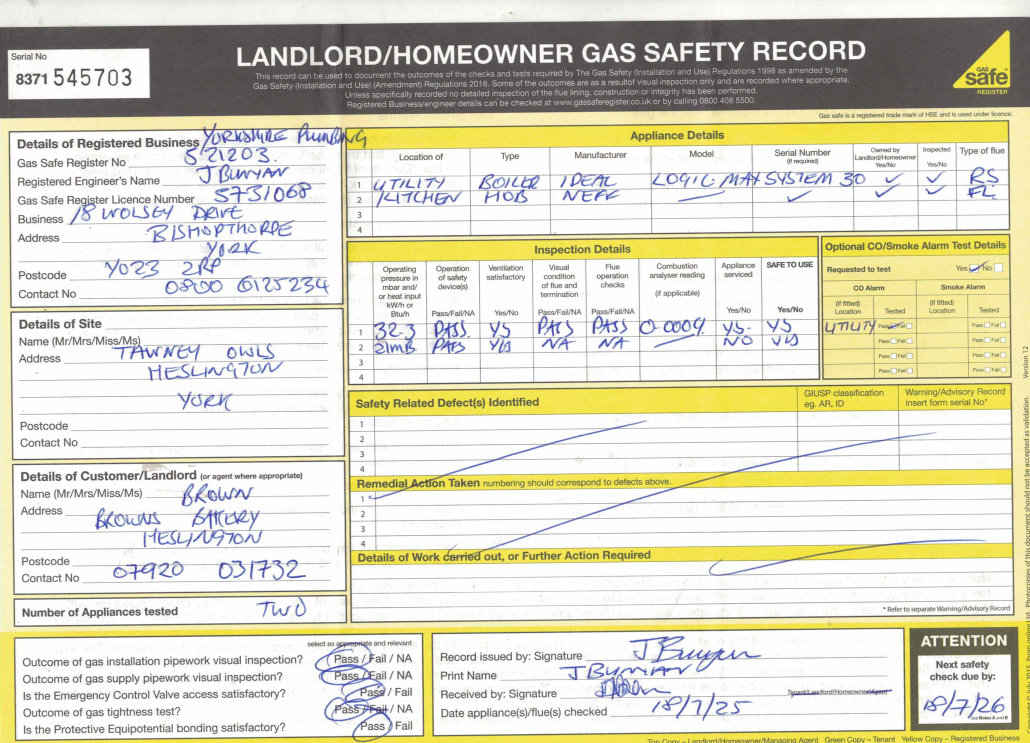 Serial No
8371 545703
LANDLORD/HOMEOWNER GAS SAFETY RECORD
This record can be used to document the outcomes of the checks and tests required by The Gas Safety (Installation and Use) Regulations 1998 as amended by the
Gas Safety (Installation and Use) (Amendment) Regulations 2018. Some of the outcomes are as a resultof visual inspection only and are recorded where appropriate.
Unless specifically recorded no detailed inspection of the flue lining, construction or integrity has been performed.
Registered Business/engineer details can be checked at www.gassaferegister.co.uk or by calling 0800 408 5500.
GAS
safe
REGISTER
Gas safe is a registered trade mark of HSE and is used under licence.
Details of Registered Business YORKSHIRE PLUMBING
Gas Safe Register No 521203.
Registered Engineer's Name J BUNYAN
Gas Safe Register Licence Number 5731068
Business 18 WOLSEY DRIVE
Address BISHOPTHORPE
YORK
Postcode YO23 2RP
Contact No 0800 6125234
Appliance Details
Location of Type Manufacturer Model Serial Number (if required) Owned by Landlord/Homeowner Yes/No Inspected Yes/No Type of flue
1 UTILITY BOILER IDEAL LOGIC MAX SYSTEM 30 ✓ ✓ RS
2 KITCHEN HOB NEFF — ✓ ✓ ✓ FL
3
4
Inspection Details
Operating pressure in mbar and/or heat input kW/h or Btu/h Operation of safety device(s) Pass/Fail/NA Ventilation satisfactory Yes/No Visual condition of flue and termination Pass/Fail/NA Flue operation checks Pass/Fail/NA Combustion analyser reading (if applicable) Appliance serviced Yes/No SAFE TO USE Yes/No
1 32.3 PASS YS PASS PASS 0-0009 YS YS
2 21MB PASS YES NA NA — NO YES
3
4
Optional CO/Smoke Alarm Test Details
Requested to test Yes ✓ No
CO Alarm Smoke Alarm
(if fitted) Location Tested (if fitted) Location Tested
UTILITY Pass Fail Pass Fail
Pass Fail Pass Fail
Pass Fail Pass Fail
Pass Fail Pass Fail
Details of Site
Name (Mr/Mrs/Miss/Ms)
Address TAWNEY OWLS
HESLINGTON
YORK
Postcode
Contact No
Safety Related Defect(s) Identified GIUSP classification eg. AR, ID Warning/Advisory Record insert form serial No*
1
2
3
4
Remedial Action Taken numbering should correspond to defects above.
1
2
3
4
Details of Work carried out, or Further Action Required
* Refer to separate Warning/Advisory Record
Details of Customer/Landlord (or agent where appropriate)
Name (Mr/Mrs/Miss/Ms) BROWN
Address
BROWNS BAKERY
HESLINGTON
Postcode
Contact No 07920 031732
Number of Appliances tested TWO
select as appropriate and relevant
Outcome of gas installation pipework visual inspection? Pass / Fail / NA
Outcome of gas supply pipework visual inspection? Pass / Fail / NA
Is the Emergency Control Valve access satisfactory? Pass / Fail
Outcome of gas tightness test? Pass / Fail / NA
Is the Protective Equipotential bonding satisfactory? Pass / Fail
Record issued by: Signature J Bunyan
Print Name J BUNYAN
Received by: Signature
Tenant/Landlord/Homeowner/Agent
Date appliance(s)/flue(s) checked 18/7/25
ATTENTION
Next safety
check due by:
18/7/26
See Notes A and B
Top Copy – Landlord/Homeowner/Managing Agent Green Copy – Tenant Yellow Copy – Registered Business
Photocopies of this document should not be accepted as validation. Version 12